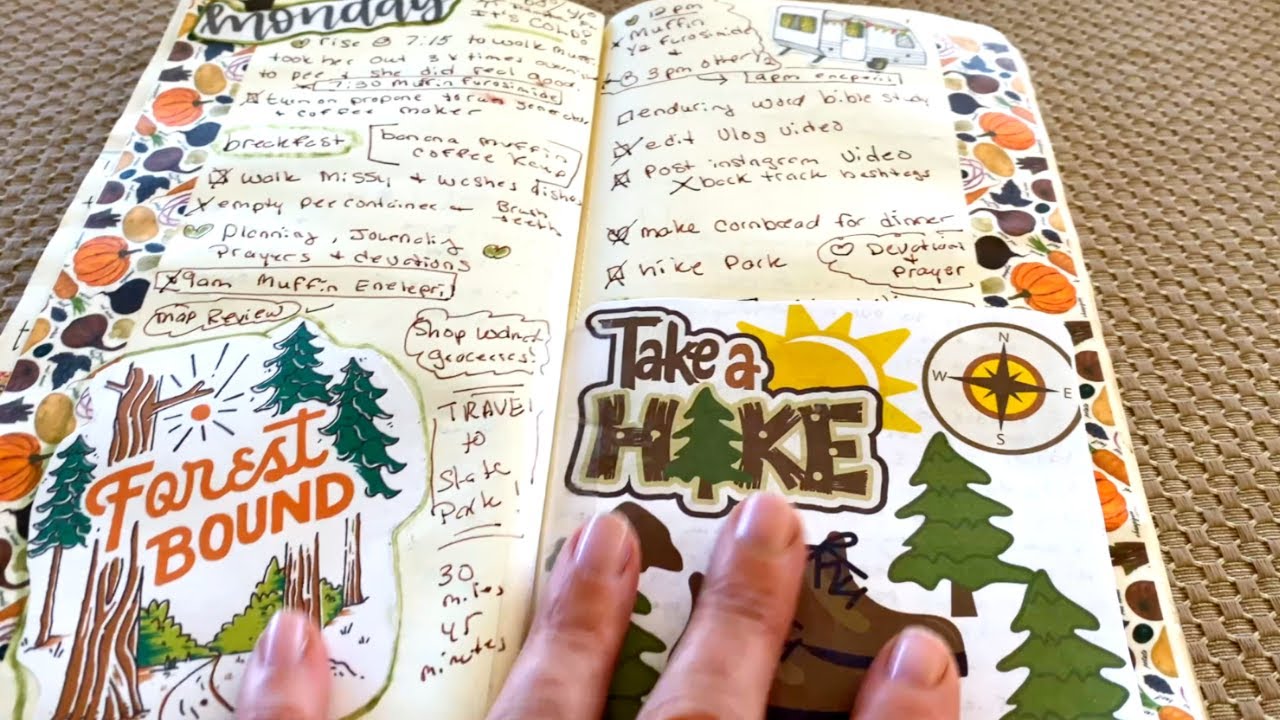 monday
It's Cold!
rise @ 7:15 to walk
took her out 3 x times
to pee & she did feel good.
7:30 Muffin Furosimide
turn on propane to run generator
+ coffee maker
breakfast
banana muffin
coffee
walk Missy + washes dishes
empty pee container +
Brush
teeth
Planning, Journalig
Prayers + devotions
9am Muffin
map Review
Shop
groceries!
TRAVEL
to
State
Park!
30
miles
45
minutes
Forest
BOUND
12pm
Muffin
1/2 furosimide
3pm other 1/2
9pm
enduring word bible study
edit Vlog video
Post instagram video
back track hashtags
make cornbread for dinner
hike Park
Devotion
+
prayer
Take a
HIKE
N
W
E
S